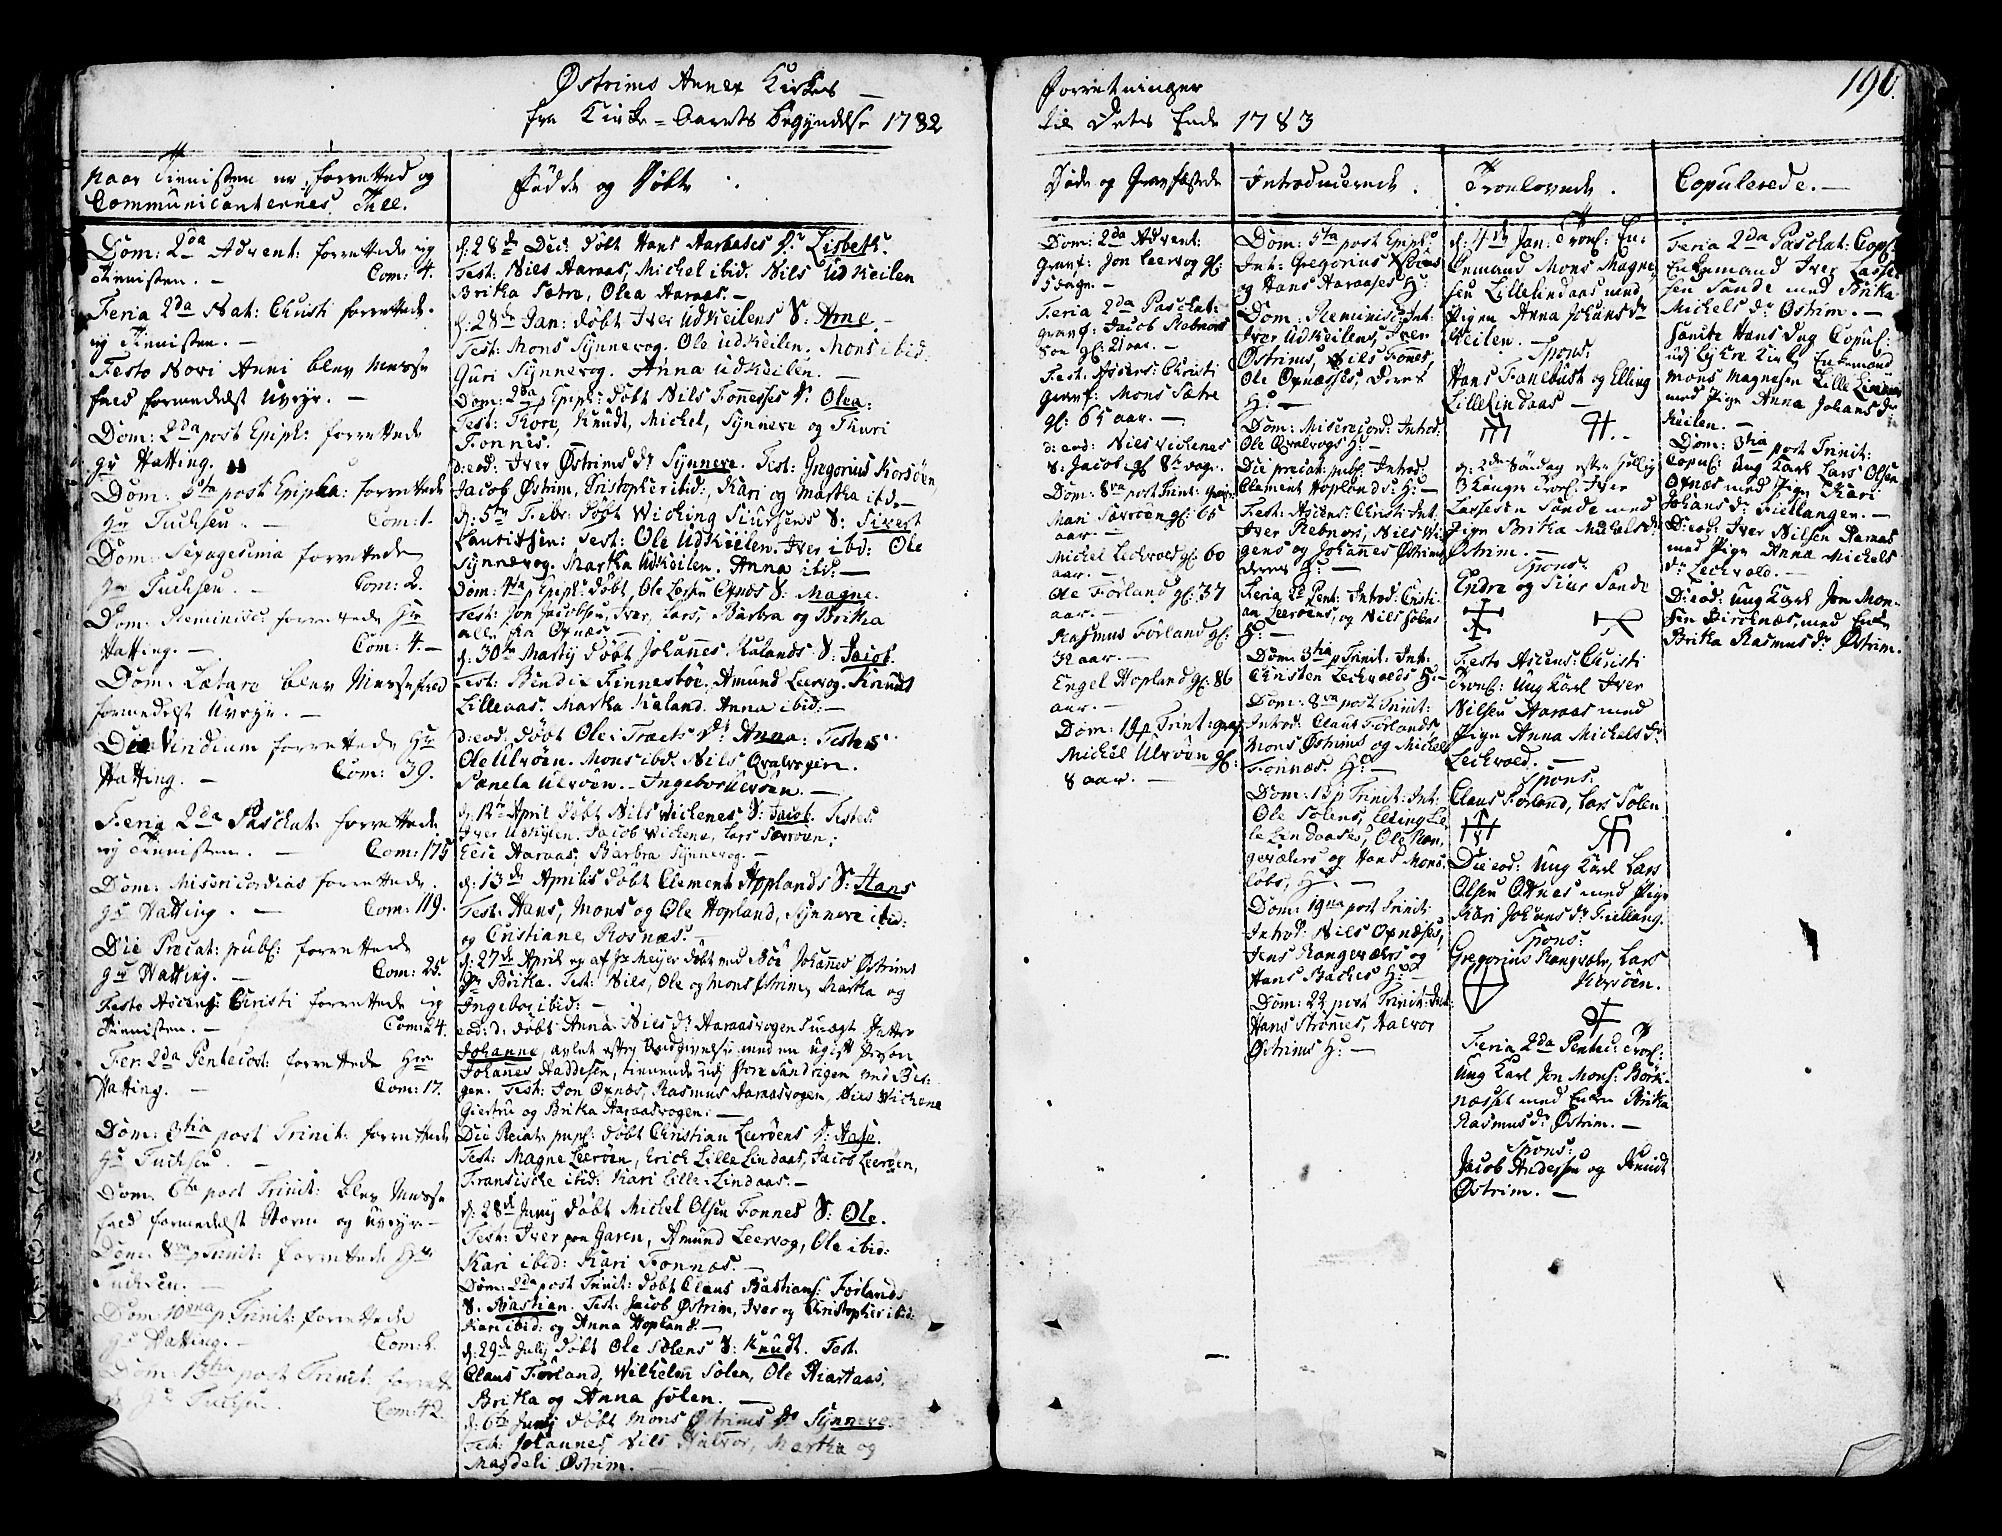 Østrims Annex Kirkes
fra Kirke-Aarets Begyndelse 1782
Naar Tienisten er forretted og
Communicanternes Tall.
Dom: 2da Advent: forrettede ieg
Tienisten. — Com: 4.
Feria 2da Nat: Christi forrettede
ieg Tienisten. —
Festo Novi Anni blev Messe
fald formedelst Uveyr. —
Dom: 2da post Epiph: forrettede
Hr Hatting.
Dom: 5ta post Epipha: forrettede
Hr Tuchsen. — Com: 1.
Dom: Sexagesima forrettede
Hr Tuchsen. — Com: 2.
Dom: Reminisc: forrettede Hr
Hatting. — Com: 4. —
Dom: Lætare blev Messefald
formedelst Uveyr. —
Die Viridium forrettede Hr
Hatting. — Com: 39.
Feria 2da Paschat: forrettede
ieg Tienisten. — Com: 175
Dom: Misericordias forrettede
Hr Hatting. — Com: 119.
Die Precat: publ: forrettede
Hr Hatting. — Com: 25.
Festo Ascens: Christi forrettede ieg
Tienisten. — Com: 24.
Fer: 2da Pentecost: forrettede Hr
Hatting. — Com: 17.
Dom: 3tia post Trinit: forrettede
Hr Tuchsen. —
Dom: 6ta post Trinit: blev Messe
fald formedelst Storm og Uveyr —
Dom: 8va p Trinit: forrettede Hr
Tuchsen. —
Dom: 10ma p Trinit: forrettede
Hr Hatting. — Com:
Dom: 13tia post Trinit: forrette
Hr Tuchsen. Com: 42.
Fødde og Døbte
d: 28de Dec: døbt Hans Aaraases Dr Lisbeth.
Test: Niels Aaraas, Michel ibid: Nils Udkeilen
Britha Sætre, Olea Aaraas. —
d: 28de Jan: døbt Iver Udkeilens S: Arne. —
Test: Mons Synnevog. Ole Udkeilen. Mons ibid.
Guri Synnevog. Anna Udkeilen. —
Dom: 2da p Epiph: døbt Nils Fonnesses Dr Olea:
Test: Tore, Knudt, Michel, Synneve og Thuri
Fonnes.
d: eod: Iver Østrims Dr Synneve. Test: Gregorius Korsøen,
Jacob Østrim, Cristopher ibid:, Kari og Martha ibid —
d: 5te Febr: døbt Wicking Siursens S: Sivert
Test: Ole Udkeilen. Iver ibid: Ole
Synnevog. Martha Udkeilen. Anna ibid: —
Dom: 4ta p Epiph: døbt, Ole Larsen Oxnes S: Magne.
Test: Jon Jacobsen, Iver, Lars, Barbra og Britha
alle fra Oxnes.
d: 30te Martij døbt Johannes Kulands S: Jacob.
Test: Bendix Finnesbøe. Amund Leervog. Knudt
Lilleaas. Martha Kieland. Anna ibid: —
d: eod: døbt Ole Traets Dr Anna: Testes
Ole Ulvøen. Mons ibid. Nils Qvalvogen.
Pernela Ulvøen. — Ingebor Ulvøen. —
d: 12te April døbt Nils Wichenes S: Jacob. Testes
Iver Udkeilen. Jacob Wichene, Lars Særvøen;
Elie Aaraas, Barbra Synnevog. —
d: 13de Aprilis døbt Clement Hoplands S: Hans
Test: Hans, Mons og Ole Hopland, Synneve ibid:
og Cristiane Rosnæs. —
d: 27de April er af Hr Meyer døbt ved Bøe Johannes Østrims
Dr Britha. Test: Nils, Ole og Mons Østrim, Martha og
Ingebor ibid: —
eod: d: døbt Anna Nils Dr Aaraasvogen Datter
Johanne,
Johannes Haddesen,
gen. Test: Jon Oxnæs, Rasmus Aaraasvogen, Niels Wichene
Giertru og Britha Aaraasvogen: —
Die Precat: publ: døbt Christian Leerøens Dr:
Test: Magne Leerøen, Erich Lille Lindaas, Jacob Leerøen,
Fransische ibid: Kari Lille-Lindaas. —
d: 28de Junij døbt Michel Olsen Fonnes S: Ole.
Test: Iver Garen, Amund Leervog, Ole ibid:
Kari ibid: Kari Fonnæs. —
Dom: 2da post Trinit: døbt Claus Bastians: Førlands
S. Bastian. Test: Jacob Østrim, Iver og Christopher ibid:
Kari ibid: og Anna Hopland. —
d: 29de Julij døbt Ole Sælens S: Knudt. Test.
Claus Førland, Wilhelm Solen, Ole Hiartaas,
Britha og Anna Sølen. —
d: 6te Junij døbt Mons Østrims Dr Synneve.
Test: Johannes, Nils Halvor, Martha og
Magdeli Østrim. —
Forretninger 190.
til Dets Ende 1783
Døde og Gravfæstede
Dom: 2da Advent:
gravf: Jon Leervog gl:
5 dage. —
Feria 2da Paschat:
gravf: Jacob Rebnors
Søn gl: 2 1 aar. —
Fest: Ascens: Christi
gravf: Mons Sætre
gl: 65 aar. —
d: eod: Niels Wichenes
S: Jacob gl 8te dage. —
Dom: 8va post Trinit: grav
Mari Særvøen gl: 65
aar. —
Michel Lechvold gl: 60
aar. —
Ole Førland gl: 37
aar. —
Rasmus Førland gl:
32 aar. —
Engel Hopland gl: 86
aar. —
Dom: 19 p Trint: grav
Michel Ulvøen gl:
8 aar. —
Introducerede.
Dom: 5ta post Epiph:
Int: Gregorius
og Hans Aaraases H: —
Dom: Reminisc: Int:
Iver Udkeilens, Iver
Østrims, Nils Fønes,
Ole Oxnæsses, deres
H: —
Dom: Misericord: Introd:
Ole Qvalvogs H: —
Die precat: publ: Introd:
Clement Hoplands: H: —
Fest: Ascens: Christi Int:
Iver Rebnors, Nils Wi
gens og Johannes Østrims
deres H: —
Feria 2e Pent: Introd: Cristi
an Leerøens, og Nils Sølens
H: —
Dom: 3tia p Trinit: Int:
Christen Lechvolds H: —
Dom: 8va post Trinit:
Introd: Claus Førlands.
Mons Østrims og Michel
Fonnæs H: —
Dom: 13 p Trinit: Int:
Ole Solens, Elling Lil
le Lindaases, Ole Ran
gevælers og Hans Mons.
løbs, H: —
Dom: 19na post Trinit:
Introd: Nils Oxnæses,
Jens Rangevælers og
Hans Baches H: —
Dom: 22 post Trinit: Int
Hans Strømes, Halvor
Østrims H: —
Trolovede.
d: 4de Jan: Trol: En-
kemand Mons Magne-
sen Lillelindaas med
Pigen Anna Johans Dr
Keilen. —
Spons:
Hans Fanebust og Elling
LilleLindaas —
d: 2de Søndag efter Hellig
3 Konger Trol: Iver
Lassesen Sande med
Pige Britha Michels Dr
Østrim. —
Spons:
Endre og Siur Sande
Festo Ascens: Christi
Trol: Ung Karl Iver
Nilsen Aaraas med
Pige Anna Michels Dr
Lechvold. —
Spons:
Claus Førland, Lars Solen
Die eod: Ung Karl Lars
Olsen Oxnes med Pige
Kari Johans Dr Fiellang.
Spons:
Gregorius Rangevæler, Lars
Korsøen.
Feria 2da Pentec: Trol:
Ung Karl Jon Mons: Børk-
næsset med Enke Britha
Rasmus Dr Østrim. —
Spons:
Jacob Andersen og Knudt
Østrim. —
Copulerede. —
Feria 2da Paschat: Copl:
Enkemand Iver Lasse-
sen Sande med Britha
Michels Dr Østrim. —
Samme Hans Dag Copul:
ud Lyhre Kirke Enkemand
Mons Magnesen Lille Lindaas
med Pige Anna Johans Dr
Keilen. —
Dom: 3tia post Trinit:
Copul: Ung Karl Lars Olsen
Oxnæs med Pige Kari
Johans Dr Fiellangen. —
Die od: Iver Nilsen Aaraas
med Pige Anna Michels
Dr Lechvold. —
Die od: Ung Karl Jon Mon-
sen Birchnæs, med Enke
Britha Rasmus Dr Østrim.